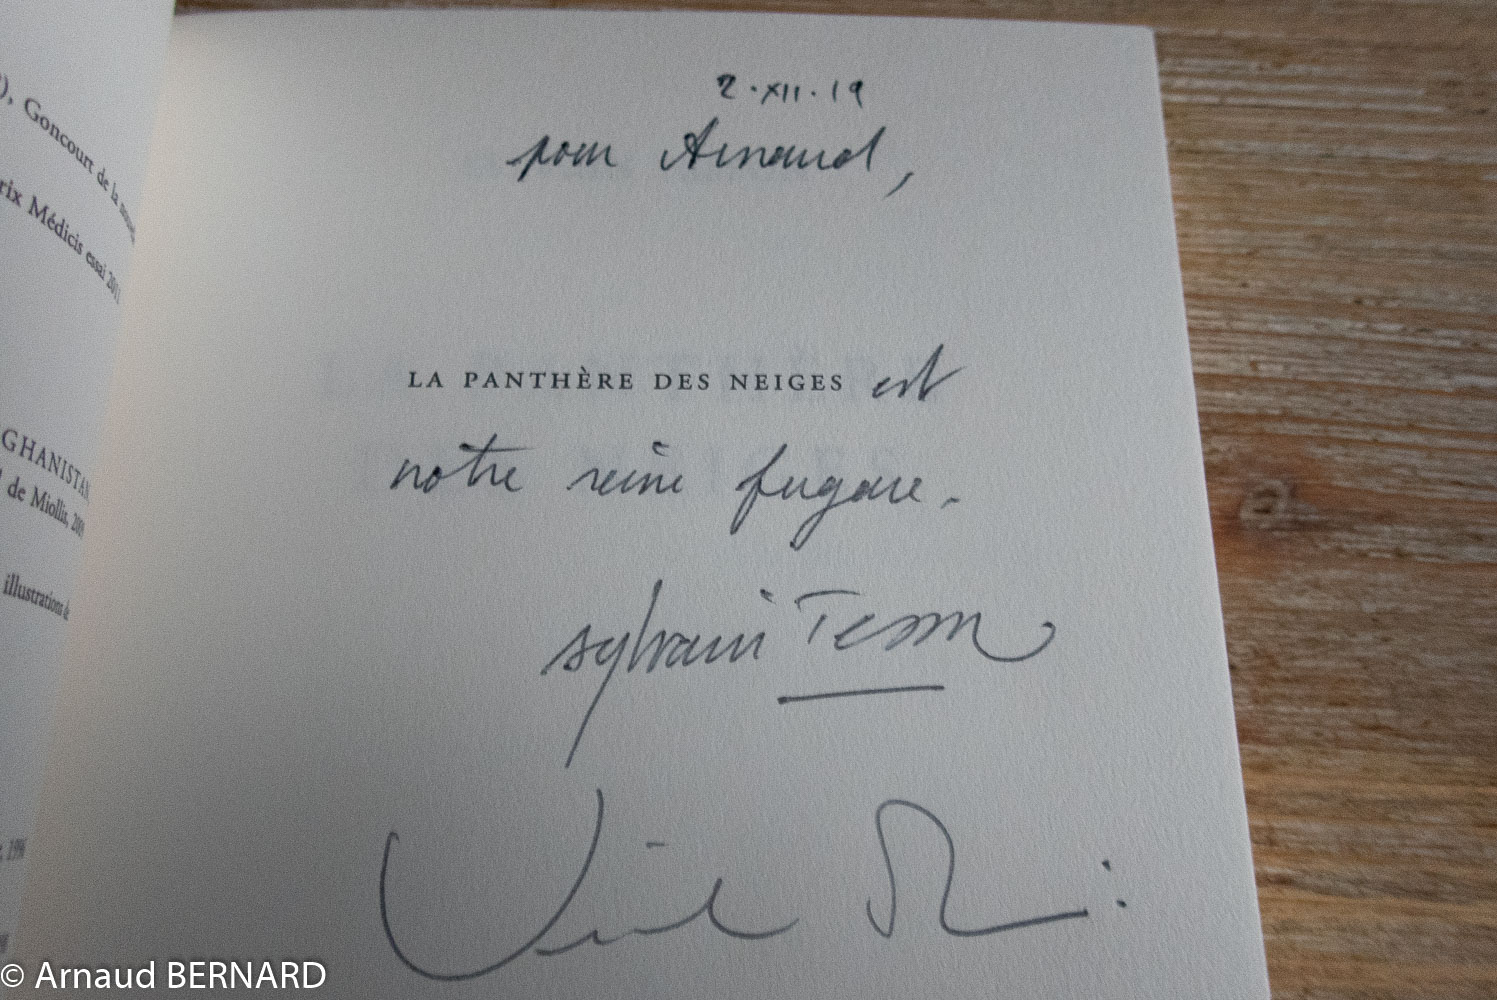 ), Goncourt de la nouvelle
rix Médicis essai 2011
GHANISTAN
de Miollis, 2009
illustrations de
, 1996
2·XII·19
pour Arnaud,
LA PANTHÈRE DES NEIGES est
notre reine fugace.
sylvain Tesson
© Arnaud BERNARD